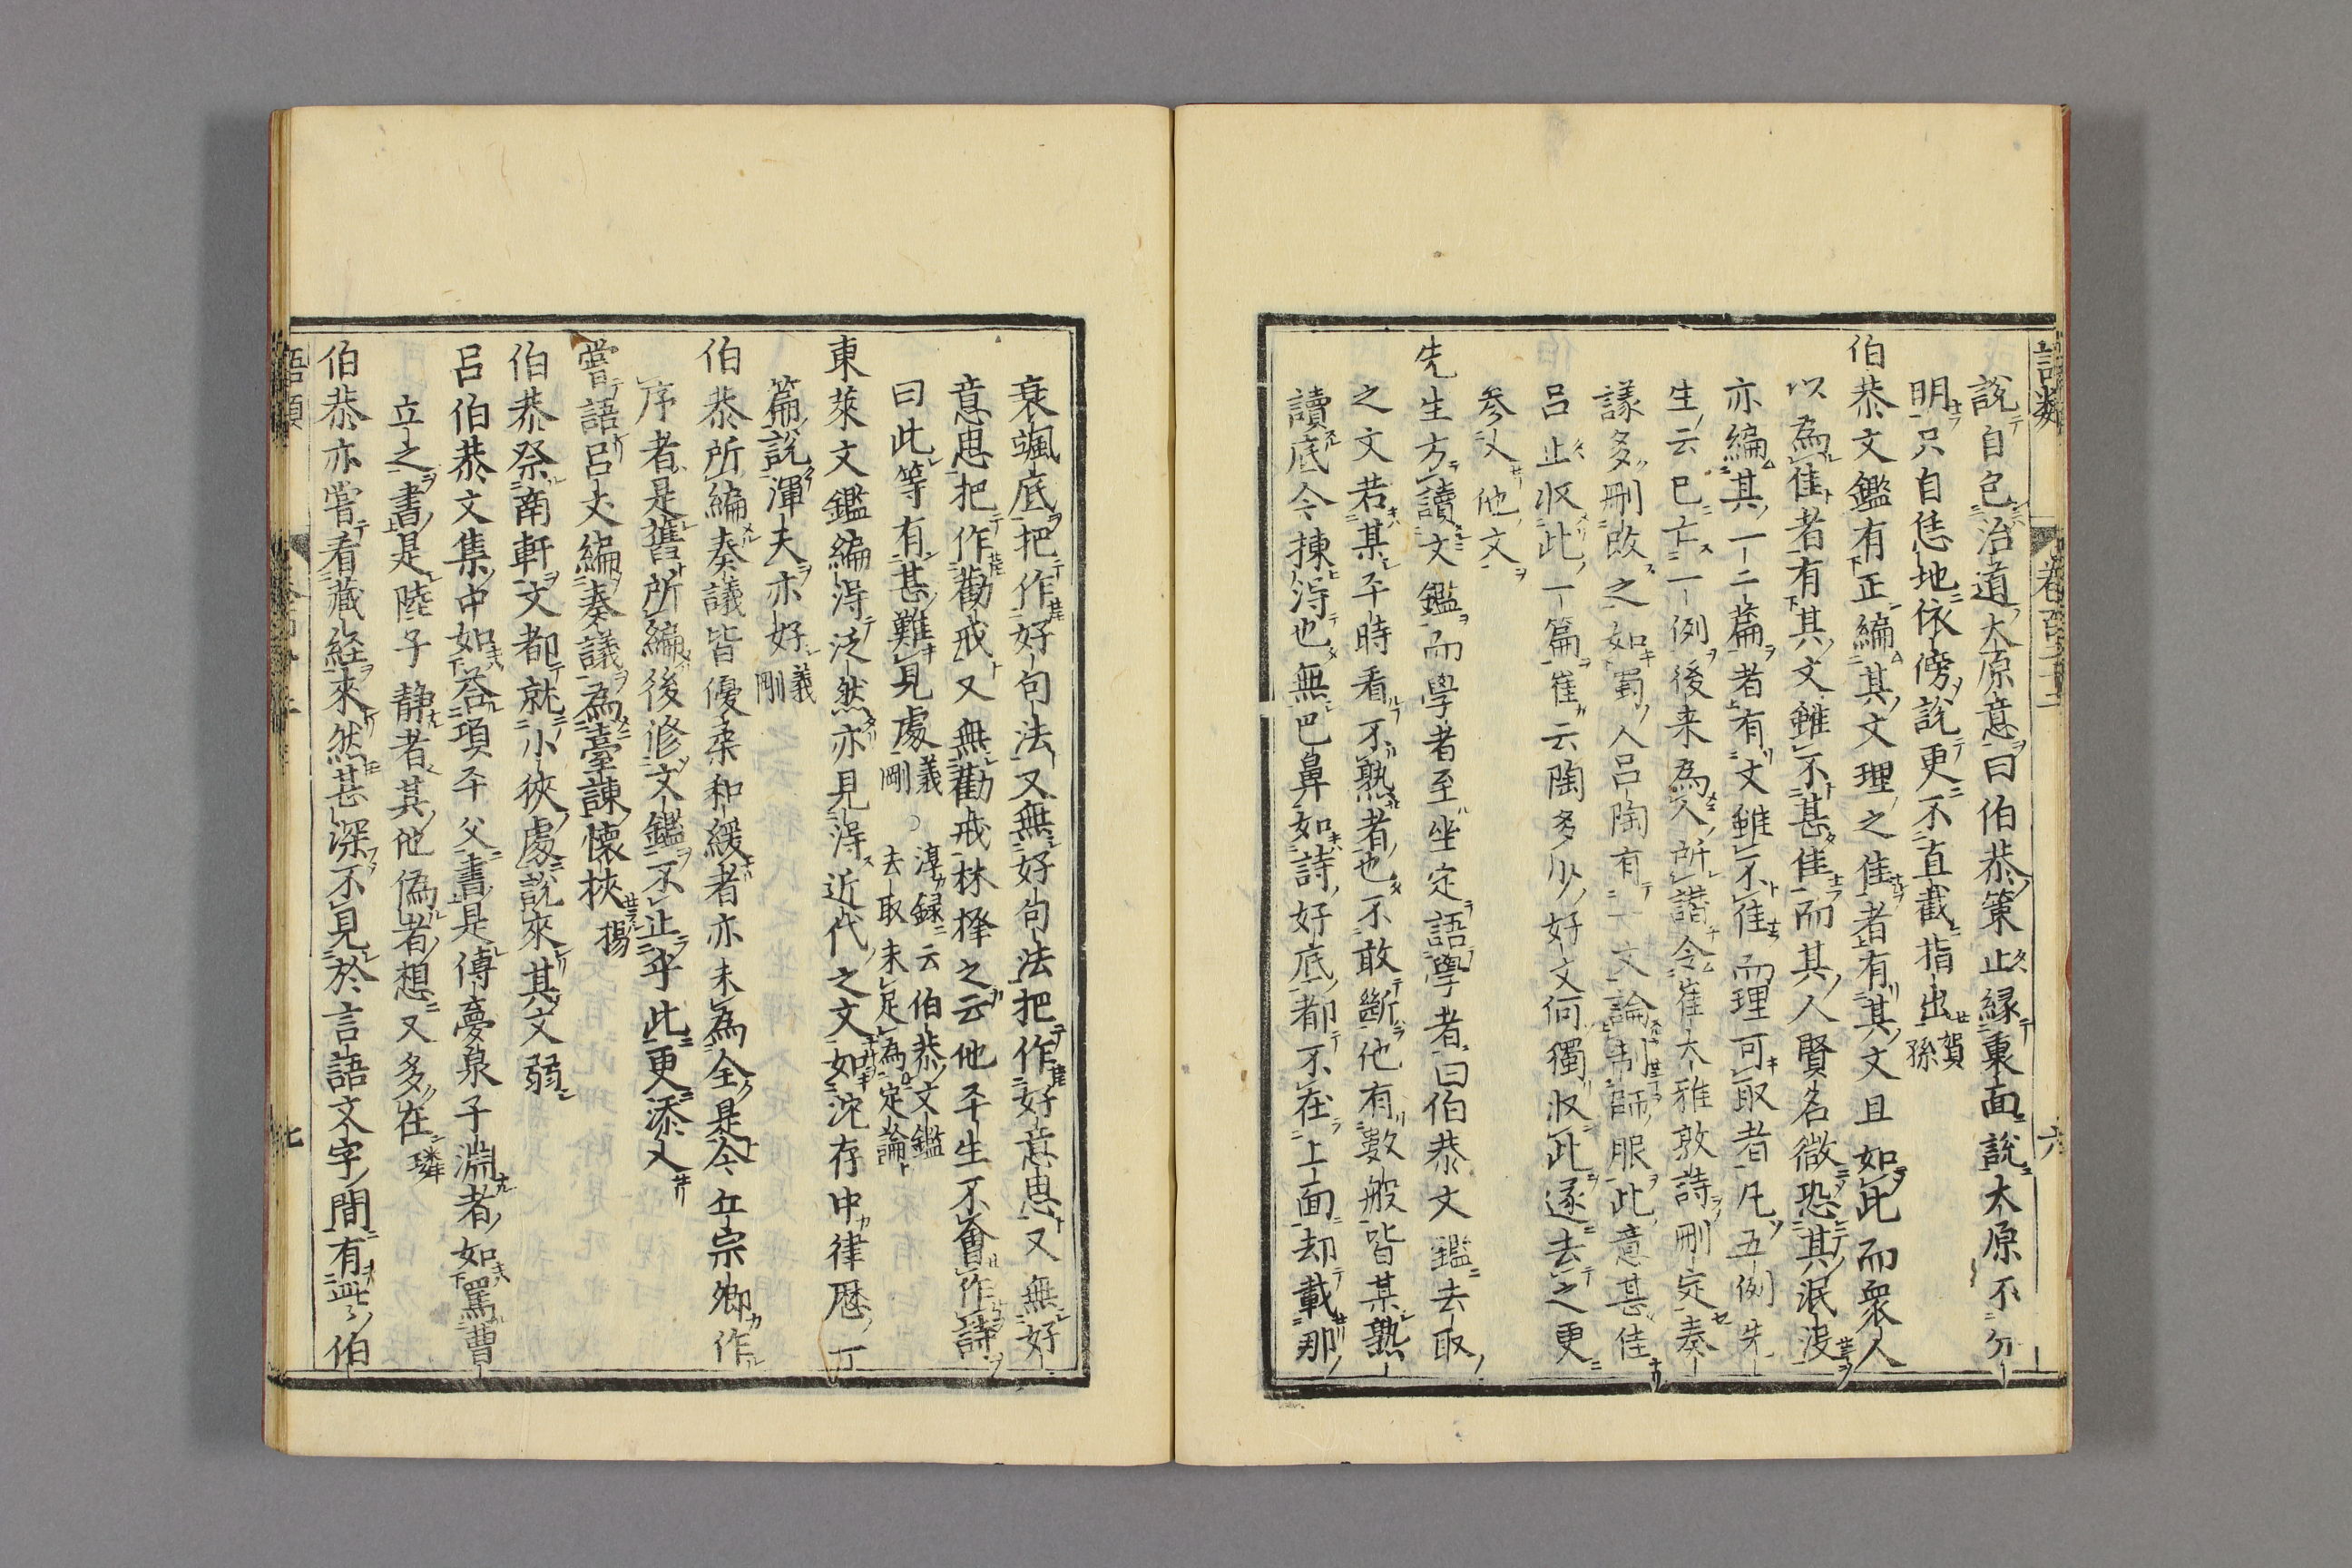 語類 卷百二十二 六
說自包治道大原意曰伯恭策止縁裏面說大原不分
明只自恁地依傍說更不直截指出賀孫
伯恭文鑑有正編其文理之佳者有其文且如此而衆人
以為佳者有其文雖不甚佳而其人賢名微恐其泯没
亦編其一二篇者有文雖不佳而理可取者凡五例先
生云已亡一例後来為人所譛令崔大雅敦詩刪定奏
議多刪改之如蜀人吕陶有一文論制師服此意甚佳
呂止收此一篇崔云陶多少好文何獨收此遂去之更
参入他文
先生方讀文鑑而學者至坐定語學者曰伯恭文鑑去取
之文若某平時看不熟者也不敢斷他有數般皆某熟
讀底今揀得也無巴鼻如詩好底都不在上面却載那
衰颯底把作好句法又無好句法把作好意思又無好
意思把作勸戒又無勸戒林擇之云他平生不會作詩
曰此等有甚難見處義剛○淳録云伯恭文鑑去取未足為定論
東萊文鑑編得泛然亦見得近代之文如沈存中律歷一
篇說渾天亦好義剛
伯恭所編奏議皆優柔和緩者亦未為全是今丘宗卿作
序者是舊所編後修文鑑不止乎此更添入
嘗語呂丈編奏議為臺諫懷挾揚
伯恭祭南軒文都就小狹處說來其文弱
呂伯恭文集中如荅項平父書是傅夢泉子淵者如罵曹
立之書是陸子静者其他偽者想又多在璘
伯恭亦嘗看藏経來然甚深不見於言語文字間有些伯
語類 七